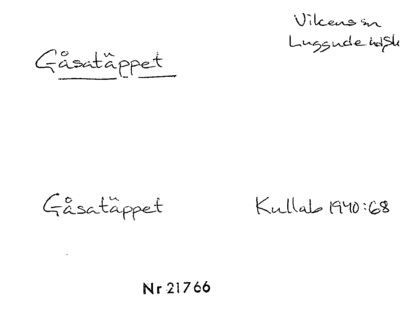 Vikens sn
Luggude hd, Sk
Gåsatäppet
Gåsatäppet Kullab 1940:68
Nr 21766